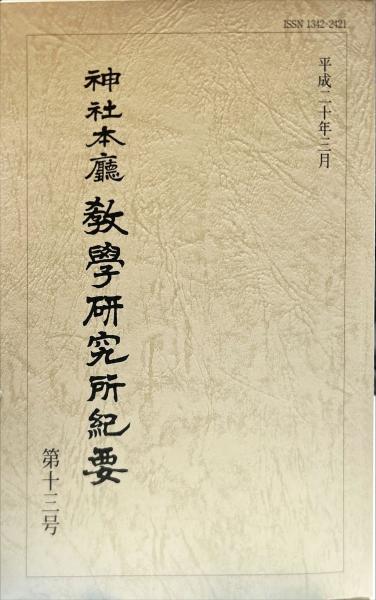 ISSN 1342-2421
平成二十年三月
神社本廳 教學研究所紀要
第十三号